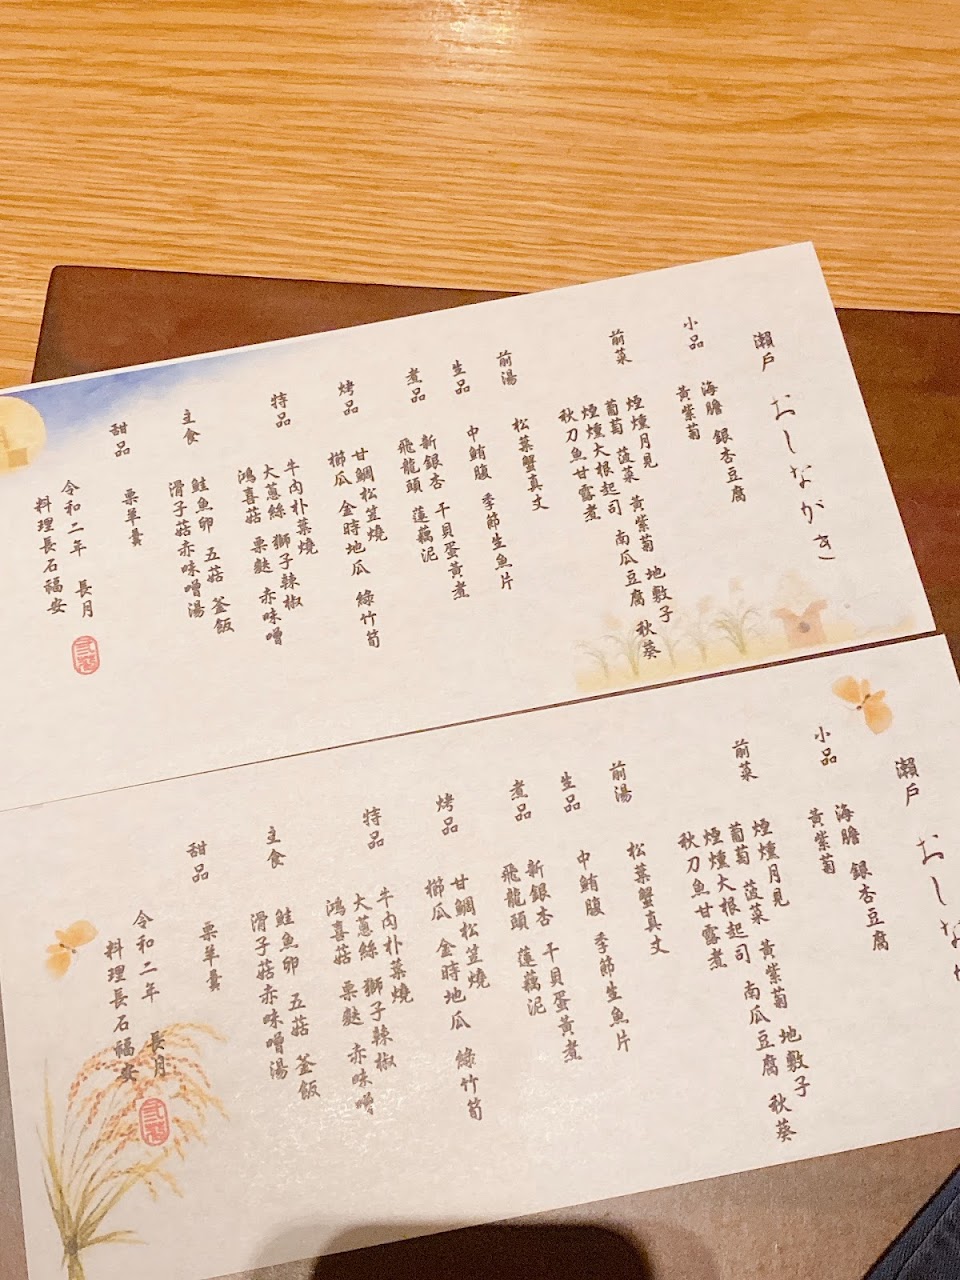 瀬戶 おしながき
小品
海膽 銀杏豆腐
黃紫菊
前菜
煙燻月見 黃紫菊 地敷子
葡萄 菠菜 南瓜豆腐 秋葵
煙燻大根起司
秋刀魚甘露煮
前湯
松葉蟹真丈
生品
中鮪腹 季節生魚片
煮品
新銀杏 干貝蛋黃煮
飛龍頭 蓮藕泥
烤品
甘鯛松笠燒
櫛瓜 金時地瓜 綠竹筍
特品
牛肉朴葉燒
大蔥絲 獅子辣椒
鴻喜菇 栗麩 赤味噌
主食
鮭魚卵 五菇 釜飯
滑子菇赤味噌湯
甜品
栗羊羹
令和二年 長月
料理長石福安
瀬戶 おしなが
小品
海膽 銀杏豆腐
黃紫菊
前菜
煙燻月見 黃紫菊 地敷子
葡萄 菠菜 南瓜豆腐 秋葵
煙燻大根起司
秋刀魚甘露煮
前湯
松葉蟹真丈
生品
中鮪腹 季節生魚片
煮品
新銀杏 干貝蛋黃煮
飛龍頭 蓮藕泥
烤品
甘鯛松笠燒
櫛瓜 金時地瓜 綠竹筍
特品
牛肉朴葉燒
大蔥絲 獅子辣椒
鴻喜菇 栗麩 赤味噌
主食
鮭魚卵 五菇 釜飯
滑子菇赤味噌湯
甜品
栗羊羹
令和二年 長月
料理長石福安